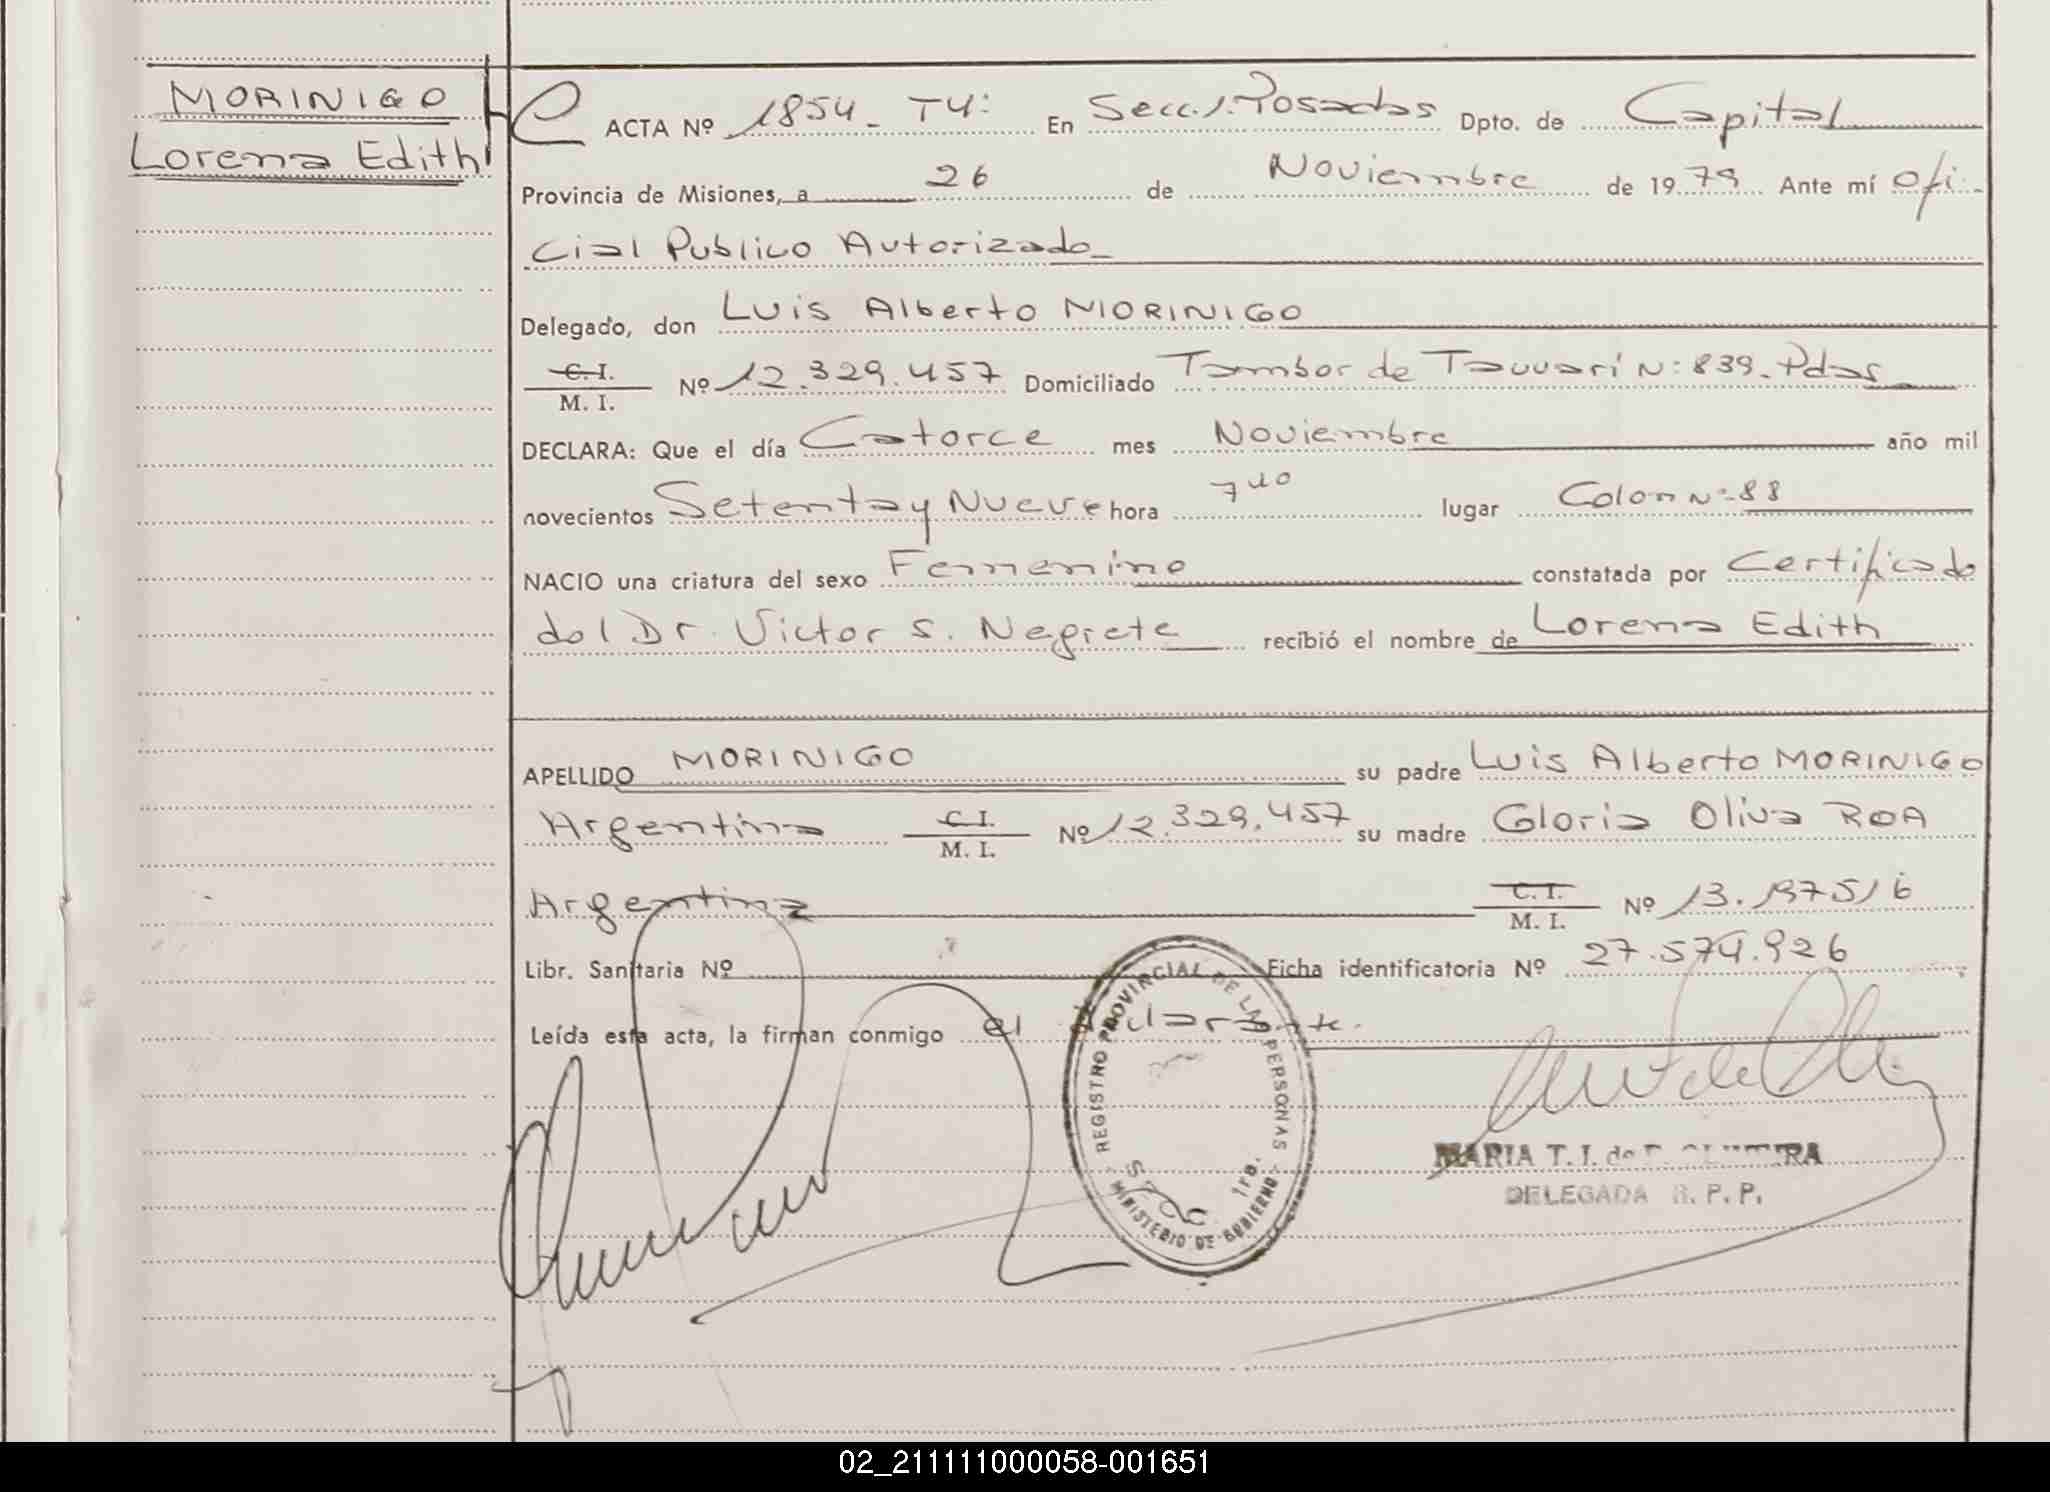 MORINIGO
Lorena Edith
ACTA Nº 1854_ T4: En Secc.1.Posadas Dpto. de Capital
Provincia de Misiones, a 26 de Noviembre de 1979 Ante mí Ofi-
cial Publico Autorizado_
Delegado, don Luis Alberto MORINIGO
C. I.
M. I. Nº 12.329.457 Domiciliado Tambor de Tacuari N: 839_Pdas
DECLARA: Que el día Catorce mes Noviembre año mil
novecientos Setenta y Nueve hora 7 40 lugar Colon Nº 88
NACIO una criatura del sexo Femenino constatada por Certificado
del Dr. Victor S. Negrete recibió el nombre de Lorena Edith
APELLIDO MORINIGO su padre Luis Alberto MORINIGO
Argentina C. I.
M. I. Nº 12.329.457 su madre Gloria Oliva ROA
Argentina C. I.
M. I. Nº 13.197516
Libr. Sanitaria Nº Ficha identificatoria Nº 27.574.926
Leída esta acta, la firman conmigo el declarante.
REGISTRO PROVINCIAL DE LAS PERSONAS
MINISTERIO DE GOBIERNO
1ra.
MARIA T. I. de
DELEGADA R. P. P.
02_211111000058-001651